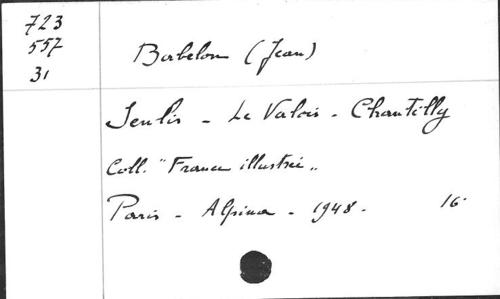 723
557
31
Babelon (Jean)
Senlis - Le Valois - Chantilly
Coll. "France illustrée"
Paris - Alpina - 1948. 16°